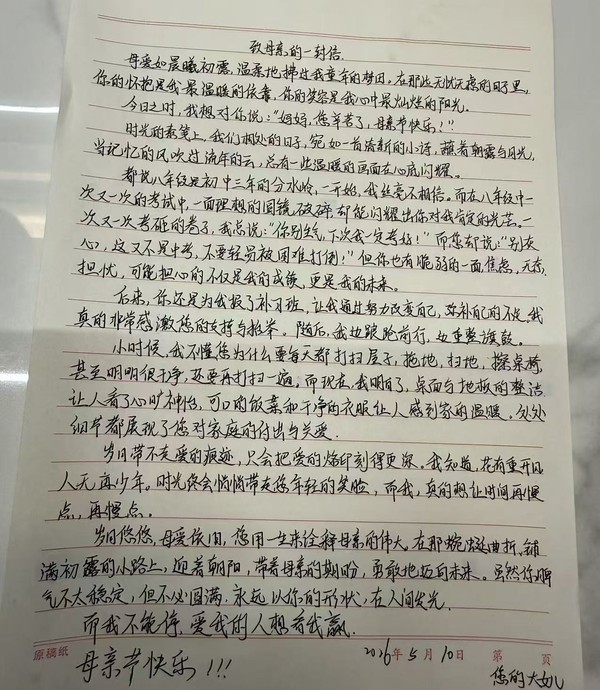 致母亲的一封信.
母爱如晨曦初露,温柔地拂过我童年的梦因,在那些无忧无虑的日子里,
你的怀抱是我最温暖的依靠,你的笑容是我心中最灿烂的阳光。
今日之时,我想对你说:"妈妈,您辛苦了,母亲节快乐!"
时光的素笺上,我们相处的日子,宛如一首清新的小诗,蘸着朝露与月光,
当记忆的风吹过流年的云,总有一些温暖的画面在心底闪耀。
都说八年级是初中三年的分水岭,一开始,我丝毫不相信。而在八年级中一
次又一次的考试中,一面理想的圆镜破碎,却能闪耀出你对我肯定的光芒。一
次又一次考砸的卷子,我总说:"你别生气,下次我一定考好!"而您却说:"别灰
心,这又不是中考,不要轻易被困难打倒!"但你也有脆弱的一面焦虑,无奈,
担忧,可能担心的不仅是我的成绩,更是我的未来。
后来,你还是为我报了补习班,让我通过努力改变自己,弥补自己的不足,我
真的非常感激您的支持与抬举。随后,我边踉跄前行,边重整旗鼓。
小时候,我不懂您为什么要每天都打扫屋子,拖地,扫地,擦桌椅,
甚至明明很干净,还要再打扫一遍,而现在,我明白了,桌面与地板的整洁
让人看了心旷神怡,可口的饭菜和干净的衣服让人感到家的温暖。处处
细节都展现了您对家庭的付出与关爱.
岁月带不走爱的痕迹,只会把爱的烙印刻得更深。我知道,花有重开日,
人无再少年。时光终会悄悄带走您年轻的笑脸,而我,真的想让时间再慢
点,再慢点。
岁月悠悠,母爱依旧,您用一生来诠释母亲的伟大。在那蜿蜒曲折,铺
满初露的小路上,迎着朝阳,带着母亲的期盼,勇敢地迈向未来。虽然你脾
气不太稳定,但不必圆满.永远以你的形状,在人间发光.
而我不能停,爱我的人想看我赢.
母亲节快乐!!!
2026年5月10日
原稿纸 第 页
您的大女儿